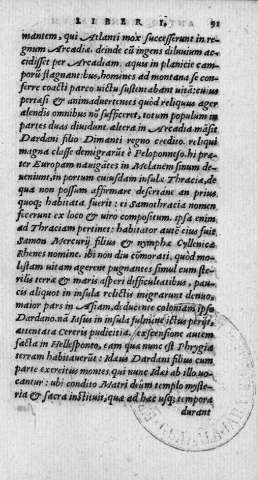 LIBER I. 91
mantem, qui Atlanti mox successerunt in re-
gnum Arcadiæ. deinde cū ingens diluuium ac-
cidisset per Arcadiam, aquis in planicie cam-
porū stagnantibus, homines ad montana se con-
ferre coacti parco uictu sustentabant uitā: cuius
pertæsi & animaduertentes quòd reliquus ager
alendis omnibus nō sufficeret, totum populum in
partes duas diuidunt. altera in Arcadia māsit
Dardani filio Dimanti regno credito. reliqui
magna classe demigrarūt è Peloponneso. hi præ-
ter Europam nauigātes in Melanem sinum de-
ueniunt, in portum cuiusdam insulæ Thraciæ, de
qua non possum affirmare desertáne an prius
quoq; habitata fuerit: ei Samothraciæ nomen
fecerunt ex loco & uiro compositum. ipsa enim
ad Thraciam pertinet: habitator autē eius fuit
Samon Mercurij filius & nymphæ Cyllenicæ
Rhenes nomine. ibi non diu cōmorati, quòd mo-
lestam uitam agerent pugnantes simul cum ste-
rili terra & maris asperi difficultatibus, pau-
cis aliquot in insula relictis migrarunt denuo,
maior pars in Asiam, deducente coloniam ipso
Dardano. nā Iasus in insula fulmine ictus perijt,
attentata Cereris pudicitia. exscensione autem
facta in Hellesponto, eam quæ nunc est Phrygia
terram habitauerūt: Idæus Dardani filius cum
parte exercitus montes, qui nunc Idæi ab illo uo-
cantur: ubi condito Matri deûm templo myste-
ria & sacra instituit, quæ ad hæc usq; tempora
durant